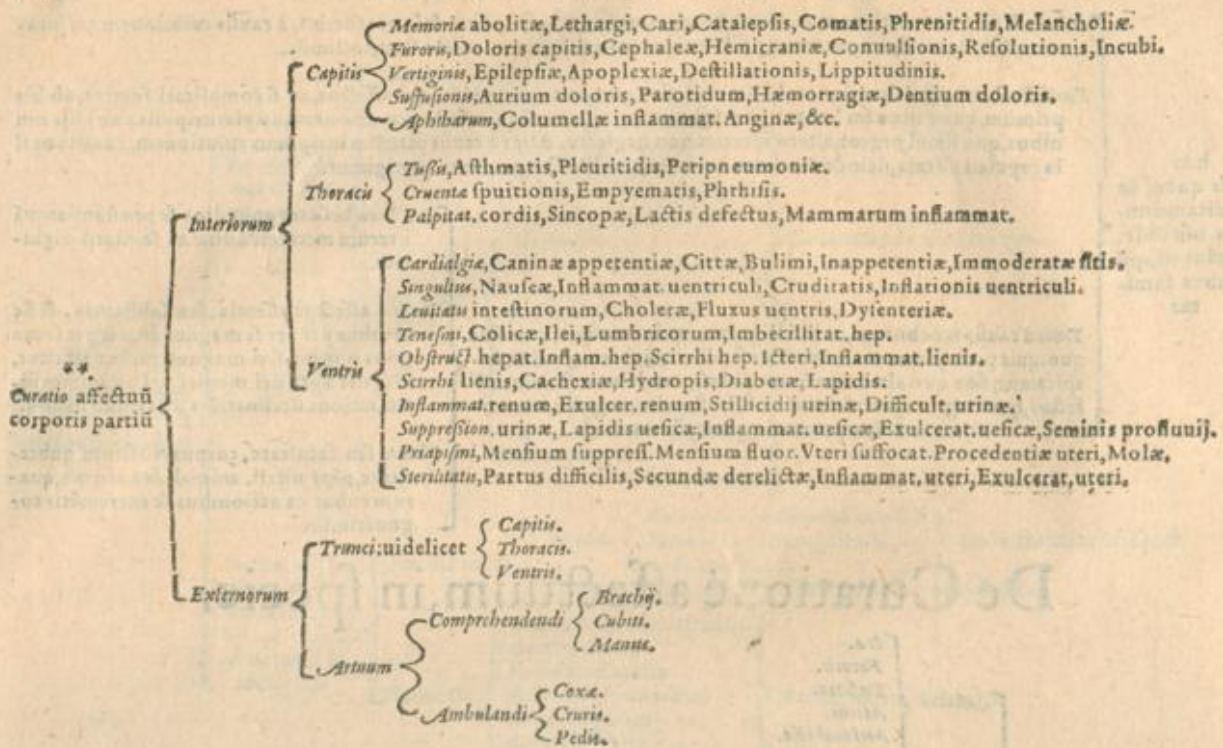 Memoriæ abolitæ, Lethargi, Cari, Catalepſis, Comatis, Phrenitidis, Melancholiæ.
Furoris, Doloris capitis, Cephaleæ, Hemicraniæ, Conuulſionis, Reſolutionis, Incubi.
Capitis
Vertiginis, Epilepſiæ, Apoplexiæ, Deſtillationis, Lippitudinis.
Suffuſionis, Aurium doloris, Parotidum, Hæmorragiæ, Dentium doloris.
Aphtharum, Columellæ inflammat. Anginæ, &c.
Tuſſis, Aſthmatis, Pleuritidis, Peripneumoniæ.
Thoracis
Cruentæ ſpuitionis, Empyematis, Phthiſis.
Palpitat. cordis, Sincopæ, Lactis defectus, Mammarum inflammat.
Interiorum
Cardialgiæ, Caninæ appetentiæ, Cittæ, Bulimi, Inappetentiæ, Immoderatæ ſitis.
Singultus, Nauſeæ, Inflammat. uentriculi, Cruditatis, Inflationis uentriculi.
Leuitatis inteſtinorum, Choleræ, Fluxus uentris, Dyſenteriæ.
Teneſmi, Colicæ, Ilei, Lumbricorum, Imbecillitat. hep.
Obſtruct. hepat. Inflam. hep. Scirrhi hep. Icteri, Inflammat. lienis.
Ventris
Scirrhi lienis, Cachexiæ, Hydropis, Diabetæ, Lapidis.
Inflammat. renum, Exulcer. renum, Stillicidij urinæ, Difficult. urinæ.
Suppreſsion. urinæ, Lapidis ueſicæ, Inflammat. ueſicæ, Exulcerat. ueſicæ, Seminis profluuij.
Priapiſmi, Menſium ſuppreſſ. Menſium fluor. Vteri ſuffocat. Procedentiæ uteri, Molæ.
Sterilitatis, Partus difficilis, Secundæ derelictæ, Inflammat. uteri, Exulcerat. uteri.
**.
Curatio affectuũ
corporis partiũ
Externorum
Trunci: uidelicet
Capitis.
Thoracis.
Ventris.
Artuum
Comprehendendi
Brachij.
Cubiti.
Manus.
Ambulandi
Coxæ.
Cruris.
Pedis.